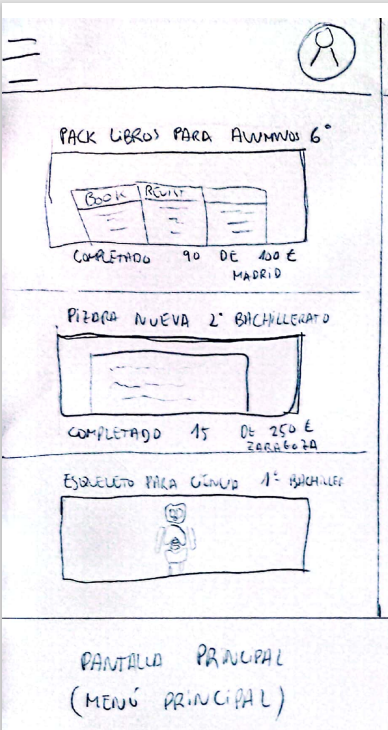 PACK LIBROS PARA ALUMNOS 6°
BOOK REVIST
COMPLETADO 90 DE 100 €
MADRID
PIZARRA NUEVA 2° BACHILLERATO
COMPLETADO 15 DE 250 €
ZARAGOZA
ESQUELETO PARA CIENCIA 1° BACHILLER
PANTALLA PRINCIPAL
(MENÚ PRINCIPAL)